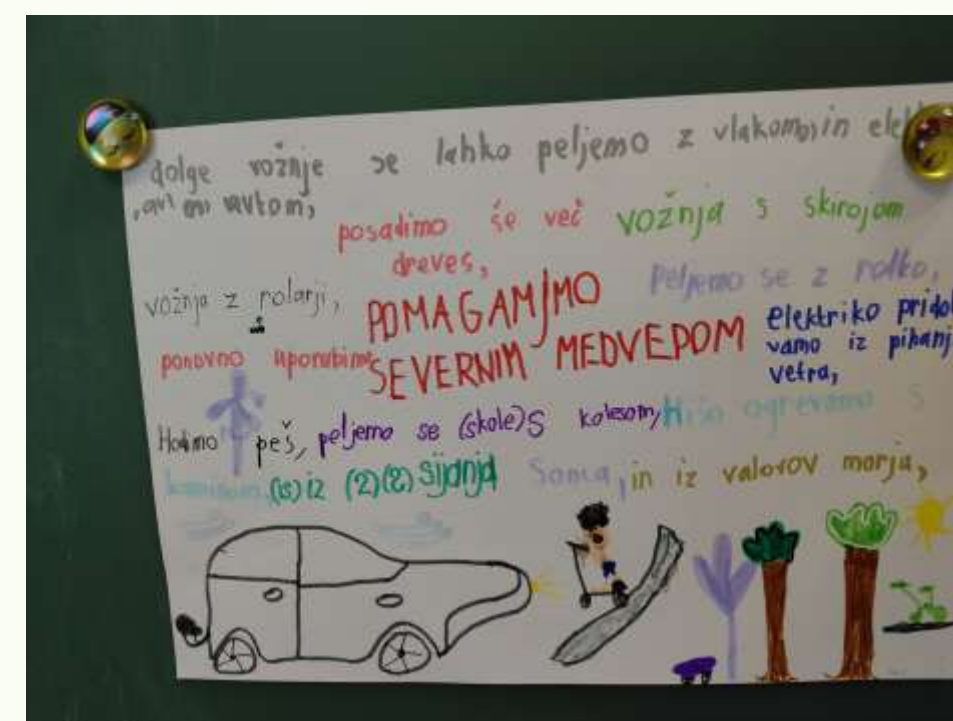 dolge vožnje se lahko peljemo z vlakom, in
avtom,
posadimo še več
dreves,
vožnja s skirojom
vožnja z rolarji,
POMAGAMJMO
SEVERNIM MEDVEDOM
Peljemo se z rolko,
elektriko
vamo iz
vetra,
ponovno uporabimo
Hodimo peš, peljemo se (skole)s kolesom, Hišo ogrevamo s
(is) iz (2)(2) sijanja Sonca, in iz valovov morja,